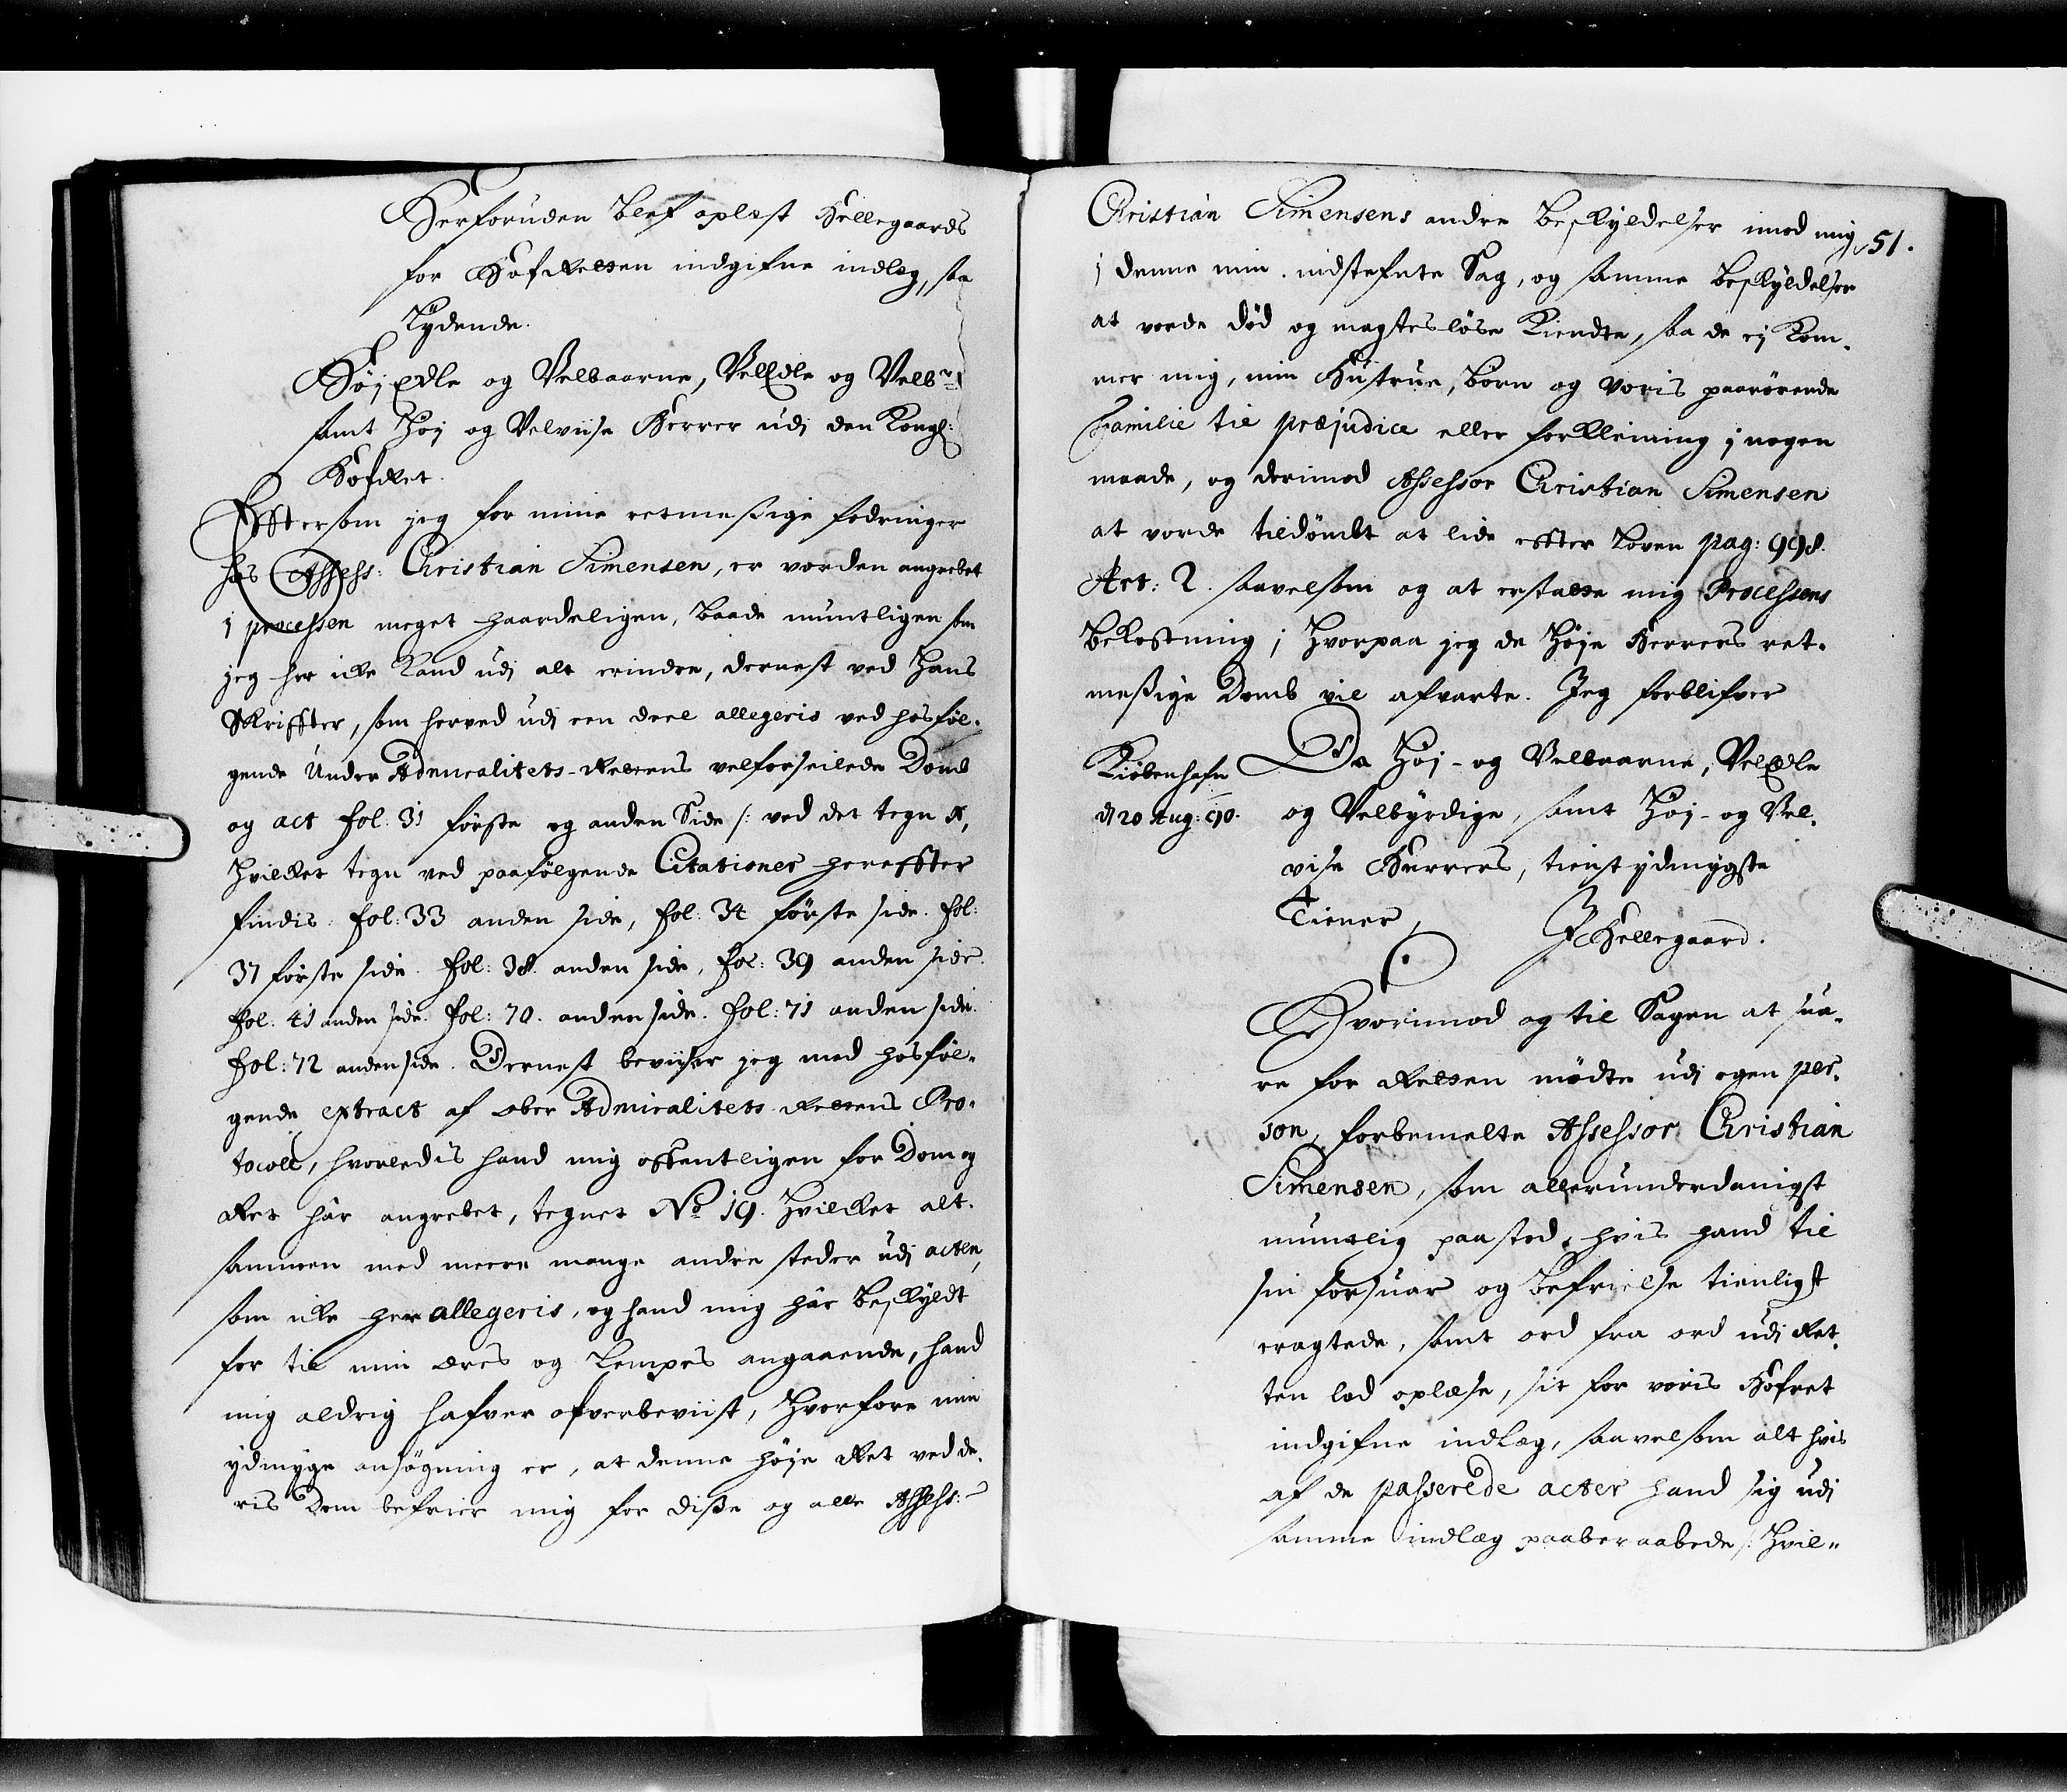 Herforuden blef oplæst Hellegaards
for HofRetten indgifne indlæg, saa
Lydende.
HöyÆdle og Velbaarne, VelEdle og Velbr:
samt Höy og Velviise Herrer udj den Kongl:
HofRet.
Eftersom jeg for mine retmeßige fodringer
hos Assess: Christian Simensen, er vorden angrebet
j processen meget haardeligen, baade muntligen som
jeg her icke kand udj alt erindre, dernest ved hans
Skriffter, som herved udj een deel allegeris ved hosföl-
gende Under Admiralitets-Rettens velforseilede Domb
og act fol. 31 förste og anden Side /: ved det tegn A,
hvilcket tegn ved paafölgende Citationer hereffter
findis. fol: 33 anden side, fol: 34 förste side. fol:
37 förste side. fol: 38. anden side, fol: 39 anden side.
fol: 41 anden side. fol: 70. anden side. fol: 71 anden side.
fol: 72 anden side. Dernest beviser jeg med hosföl-
gende extract af Ober Admiralitets Rettens Pro-
tocoll, hvorledis hand mig offentligen for Dom og
Ret har angrebet, tegnet No 19. hvilcket alt-
sammen med meere mange andre steder udj acten,
som icke her allegeris, og hand mig har beskyldt
for til min æres og Lempes angaaende, hand
mig aldrig hafver ofverbeviist, hvorfore min
ydmyge ansögning er, at denne höje Ret ved de-
ris Dom befrier mig for diße og alle Assess:
Christian Simensens andre beskyldelser imod mig 51.
j denne min indstefnte Sag, og samme beskyldelser
at vorde död og magteslöse kiendte, saa de ej kom-
mer mig, min Hustrue, börn og voris paarörende
Familie til præjudice eller forkleining j nogen
maade, og derimod Assessor Christian Simensen
at vorde tildömbt at lide effter Loven pag: 998.
Art: 2. saavelsom og at erstatte mig Processens
bekostning; hvorpaa jeg de höje Herrers ret-
meßige Domb vil afvarte. Jeg forblifver
Kiöbenhafn De Höj- og Velbaarne, VelEdle
d 20 Aug: 90. og Velbyrdige, samt Höj- og Vel-
vise Herrers, tienstydmygste
Tiener, J Hellegaard.
Hvorimod og til Sagen at sva-
re for Retten mödte udj egen per-
son, forbemelte Assessor Christian
Simensen, som allerunderdanigst
muntlig paastod, hvis hand til
sin forsuar og befrielse tienligst
eragtede, samt ord fra ord udj Ret-
ten lod oplæse, sit for voris Hofret
indgifne indlæg, saavelsom alt hvis
af de passerede acter hand sig udj
samme indlæg paaberaabede /: hvil-